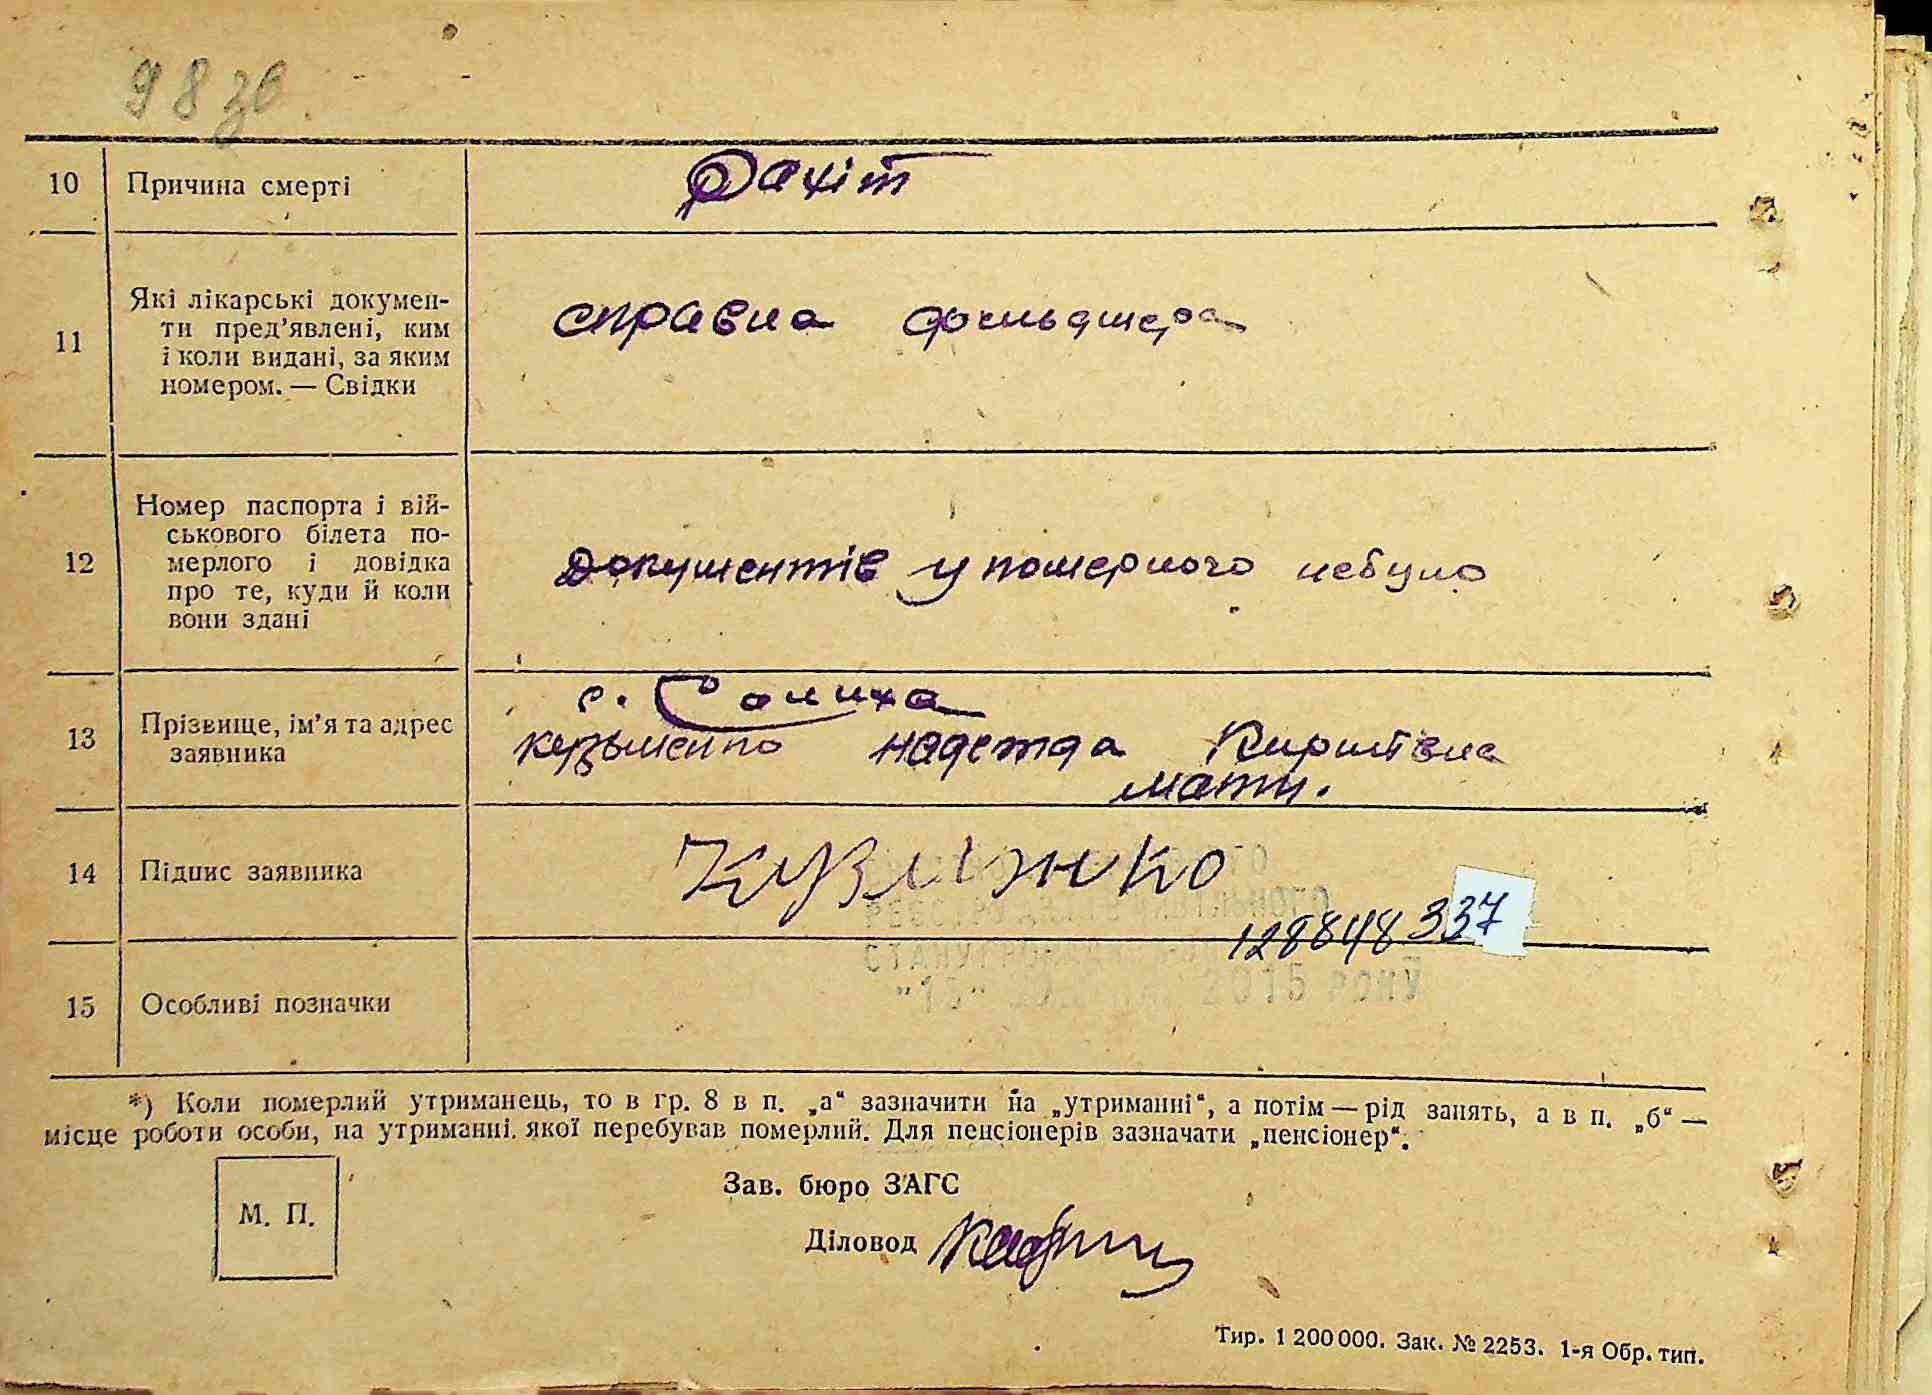 98 зв
10 Причина смерті Рахіт
11 Які лікарські докумен-
ти пред’явлені, ким
і коли видані, за яким
номером. — Свідки
справка фельдшера
12 Номер паспорта і вій-
ськового білета по-
мерлого і довідка
про те, куди й коли
вони здані
Документів у померлого небуло
с. Солиха
13 Прізвище, ім’я та адрес
заявника
Кузьменко Надежда
мати.
14 Підпис заявника
128848337
СТАНУ ГРОМАДЯН
2015 РОКУ
15 Особливі позначки
*) Коли померлий утриманець, то в гр. 8 в п. „а“ зазначити на „утриманні“, а потім — рід занять, а в п. „б“ —
місце роботи особи, на утриманні якої перебував померлий. Для пенсіонерів зазначати „пенсіонер“.
М. П.
Зав. бюро ЗАГС
Діловод
Тир. 1 200 000. Зак. № 2253. 1-я Обр. тип.